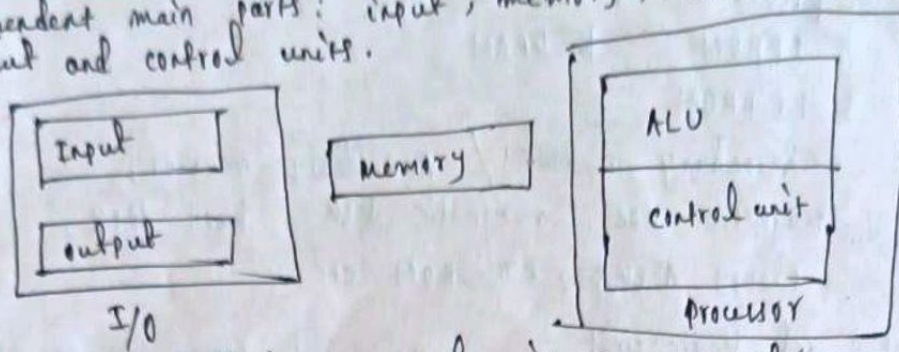 main parts: input, memory,
and control units.
Input
output
I/O
Memory
ALU
control unit
Processor